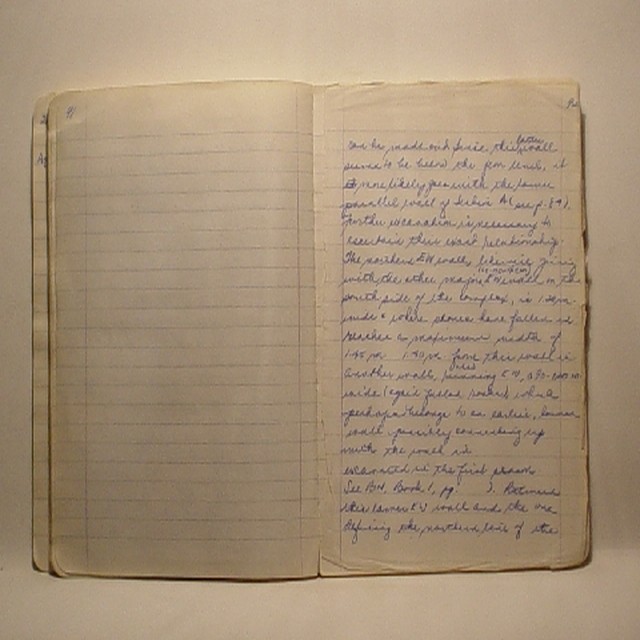 91
92
can be made and since this latter wall
seems to be below the floor level, it
more likely goes with the lower
parallel wall of (see p. 89).
Further excavation is necessary to
ascertain their exact relationship.
The northern EW wall, likewise going
with the other major EW wall on the
south side of the complex, is 1.20 m.
wide & where stones have fallen it
reaches a maximum width of
1.45 m. 1.40 m from this wall is
another wall, running EW, .90-
wide (again fallen stones) which
perhaps belongs to an earlier, lower
wall possibly connecting up
with the wall
excavated in the first season
See BH, Book 1, pg. ). Between
this lower EW wall and the one
defining the northern line of the